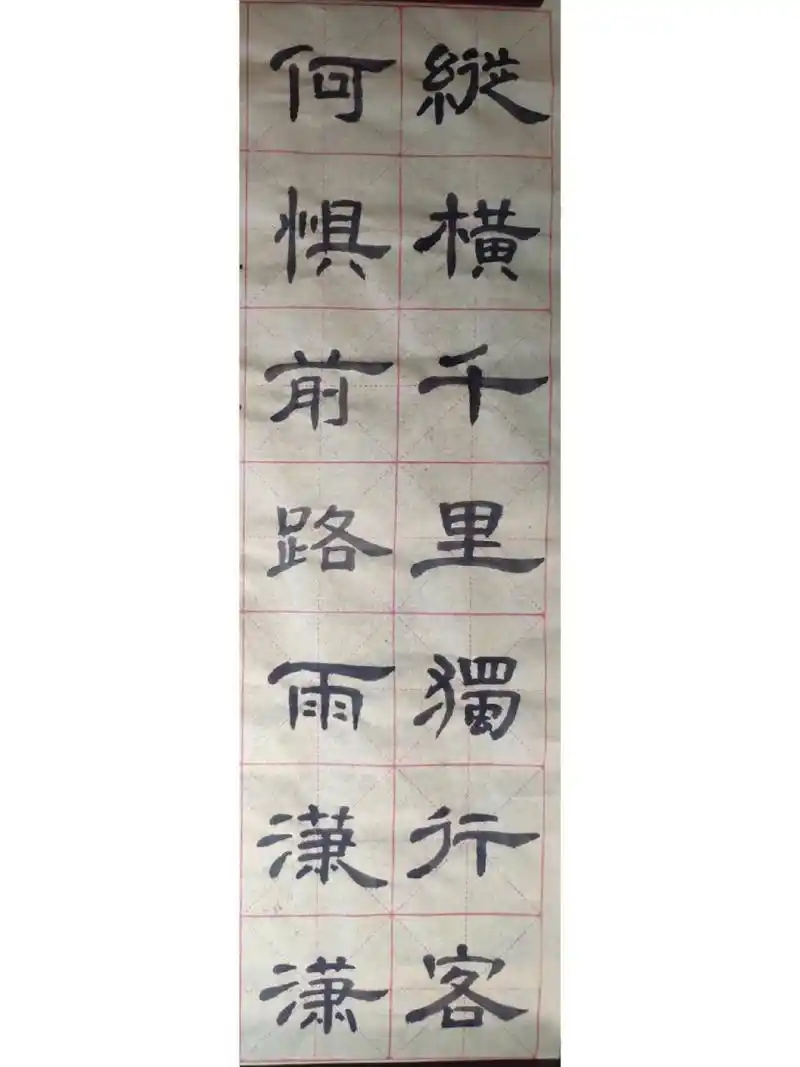 縱橫千里獨行客
何惧前路雨潇潇